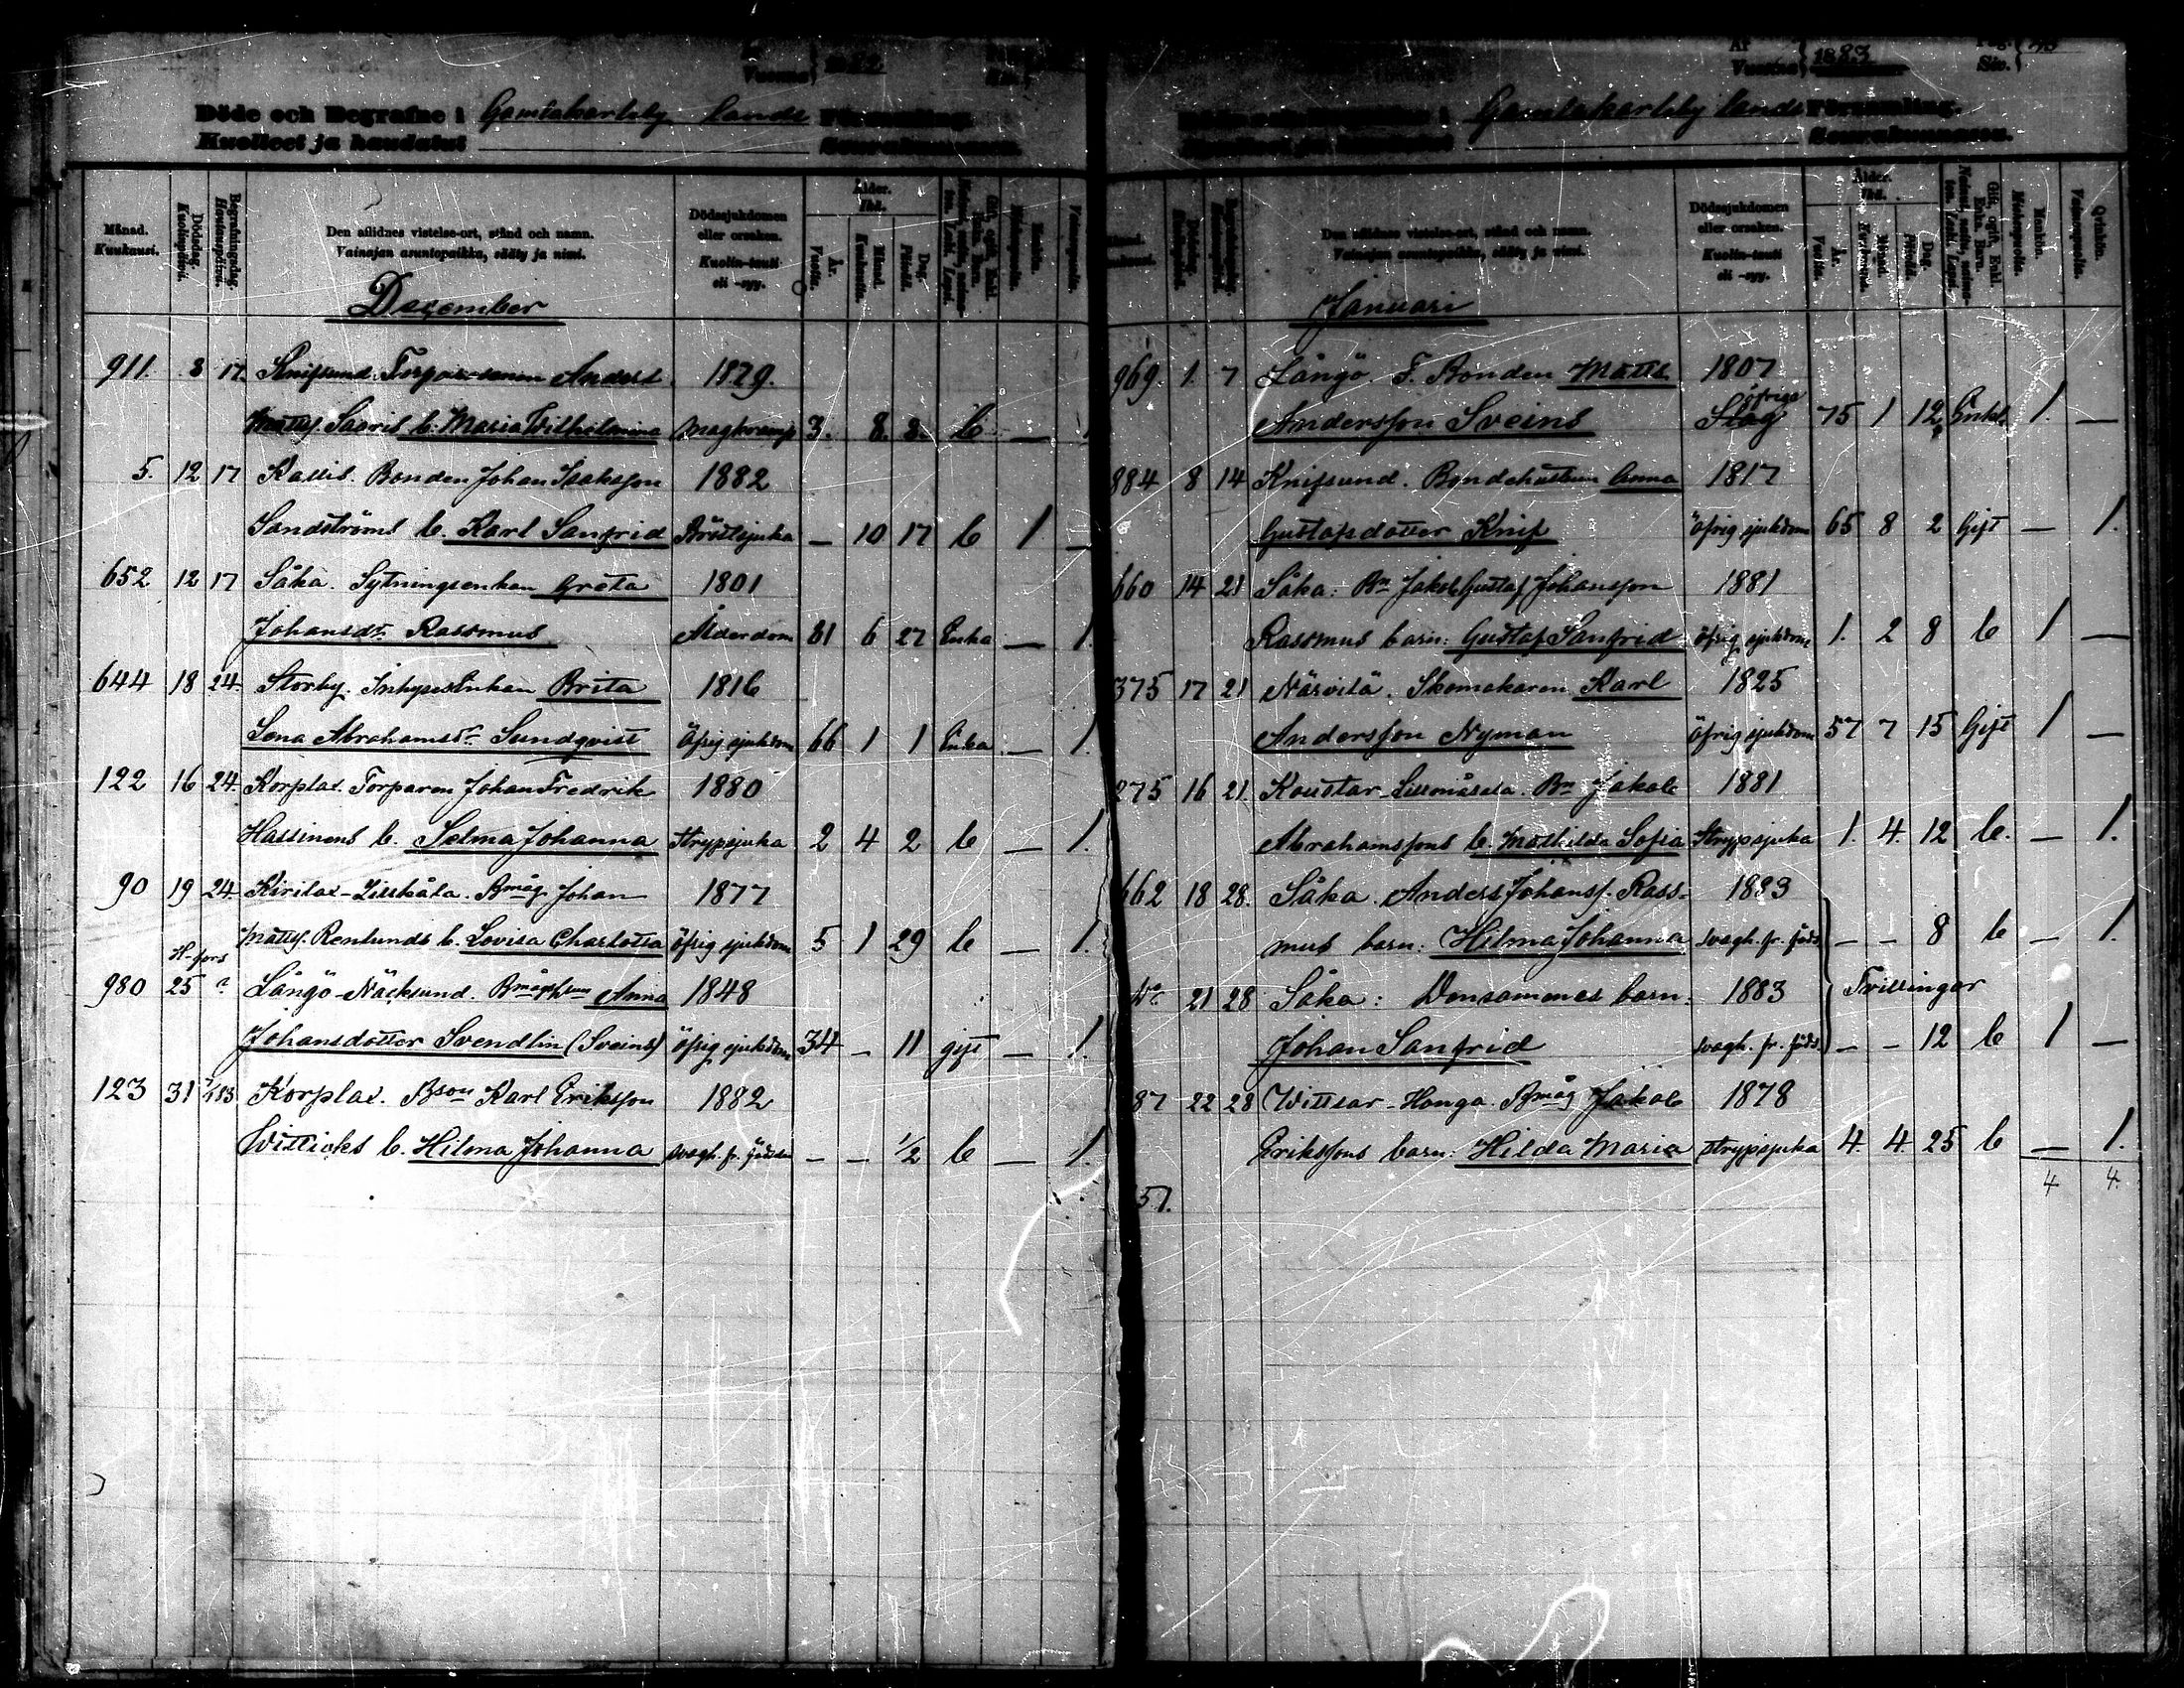 Vuonna 1882
Döde och Begrafne i Gamlakarleby lands Församling.
Kuolleet ja haudatut Seurakunnassa.
Månad. Kuukausi.
Dödsdag. Kuolinpäivä.
Begrafningsdag. Hautauspäivä.
Den aflidnes vistelse-ort, stånd och namn.
Vainajan asuntopaikka, sääty ja nimi.
Dödssjukdomen eller orsaken.
Kuolin-tauti eli -syy.
Ålder. Ikä.
År. Vuosia.
Månad. Kuukautta.
Dag. Päivää.
Gift, ogift, Enkl. Enka. Barn.
Mankön. Miehenpuolta.
Vaimonpuolta.
December
911. 8 17. Knifsund. Torparesonen Anders 1879.
Mattss. Saaris b. Maria Wilhelmina Magkramp 3. 8. 8. b — 1
5. 12 17 Kallis. Bonden Johan Isaksson 1882
Sandströms b. Karl Sanfrid Bröstsjuka — 10 17 b 1 —
652 12 17 Såka. Sytningsenkan Greta 1801
Johansdr. Rassmus Ålderdom 81 6 27 Enka — 1.
644 18 24. Storby. Inhyses Enkan Brita 1816
Lena Abrahamsdr. Sundqvist Öfrig sjukdom 66 1 1 Enka — 1.
122 16 24. Korplax. Torparen Johan Fredrik 1880
Hassinens b. Selma Johanna Strypsjuka 2 4 2 b — 1.
90 19 24. Kirilax-Lisskåla. Bmåg. Johan 1877
Mattss. Renlunds b. Lovisa Charlotta Öfrig sjukdom 5 1 29 b — 1.
H-fors
980 25 ? Långö-Näcksund. Bmåghsun Anna 1848
Johansdotter Svendlin (Sveins) Öfrig sjukdom 34 — 11 gift — 1.
123 31 7/1 83 Korplax. Bson Karl Eriksson 1882
Witticks b. Hilma Johanna Svagh. fr. födseln — — 1/2 b — 1.
År Vuonna 1883
Pag. Siv.
Gamlakarleby lands Församling.
Seurakunnassa.
Den aflidnes vistelse-ort, stånd och namn.
Vainajan asuntopaikka, sääty ja nimi.
Dödssjukdomen eller orsaken.
Kuolin-tauti eli -syy.
Ålder. Ikä.
År. Vuosia.
Månad. Kuukautta.
Dag. Päivää.
Gift, ogift, Enkl. Enka. Barn.
Mankön. Miehenpuolta.
Qvinkön. Vaimonpuolta.
Januari
969. 1. 7 Långö. F. Bonden Matts 1807
öfriga
Andersson Sveins Slag 75 1 12 Enkl. 1. —
884 8 14 Knifsund. Bondehustrun Anna 1817
Gustafsdotter Knif öfrig sjukdom 65 8 2 Gift — 1.
660 14 21 Såka: Bn Jakob Gustaf Johansson 1881
Rassmus barn: Gustaf Sanfrid öfrig sjukdom 1. 2 8 b 1 —
375 17 21 Närvilä. Skomakaren Karl 1825
Andersson Nyman öfrig sjukdom 57 7 15 Gift 1 —
275 16 21. Koustar-Lissmåsala. Bn Jakob 1881
Abrahamssons b. Mathilda Sofia Strypsjuka 1. 4. 12 b. — 1.
662 18 28. Såka. Anders Johanss. Rass- 1883
mus barn: Hilma Johanna svagh. fr. föds. — — 8 b — 1.
Do 21 28 Såka: Densammes barn: 1883 Tvillingar
Johan Sanfrid svagh. fr. föds. — — 12 b 1 —
87 22 28 Wittsar-Honga. Bmåg Jakob 1878
Erikssons barn: Hilda Maria Strypsjuka 4. 4. 25 b — 1.
57. 4 4.